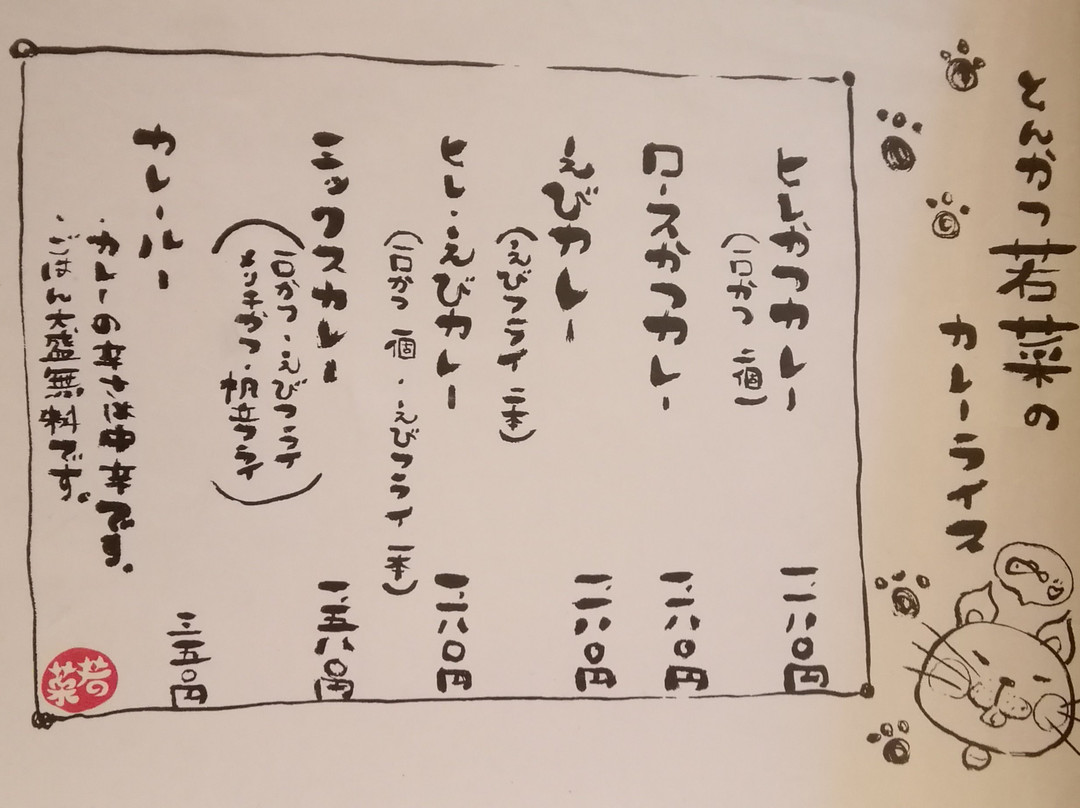 とんかつ若菜の
カレーライス
ヒレかつカレー 一、一八〇円
(一口かつ 二個)
ロースかつカレー 一、一八〇円
えびカレー 一、一八〇円
(えびフライ 二本)
ヒレ・えびカレー 一、一八〇円
(一口かつ 一個・えびフライ 一本)
ミックスカレー 一、五八〇円
(一口かつ・えびフライ
メンチかつ・帆立フライ)
カレールー 三五〇円
・カレーの辛さは中辛です。
・ごはん大盛無料です。
若菜